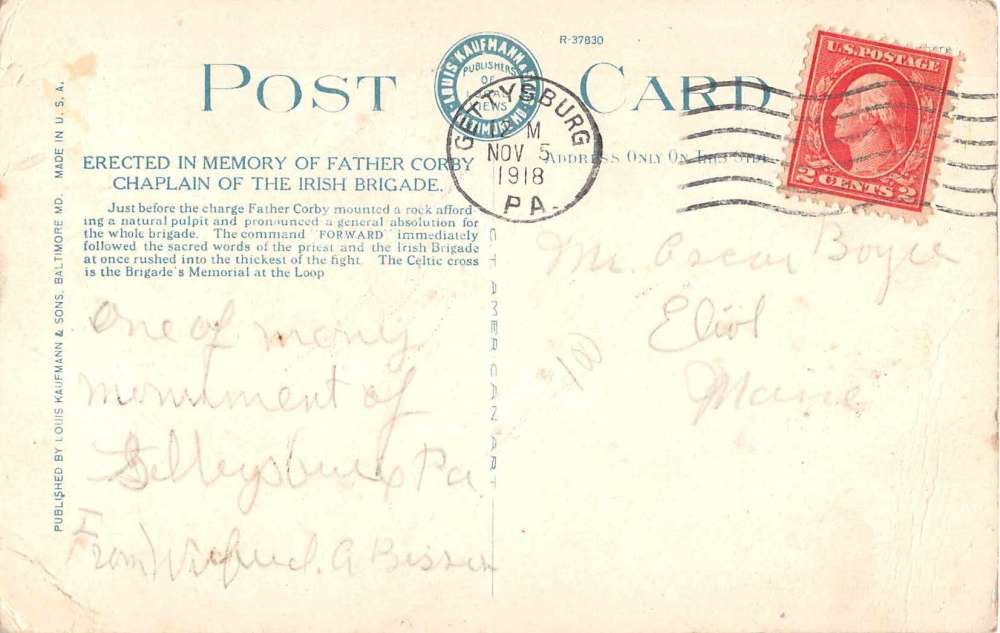 R-37830
POST CARD
LOUIS KAUFMANN & SONS
PUBLISHERS
OF
LOCAL
VIEWS
BALTIMORE MD.
GETTYSBURG
M
NOV 5
1918
PA.
U.S. POSTAGE
2 CENTS 2
here
ADDRESS ONLY ON THIS SIDE
ERECTED IN MEMORY OF FATHER CORBY
CHAPLAIN OF THE IRISH BRIGADE.
Just before the charge Father Corby mounted a rock afford-
ing a natural pulpit and pronounced a general absolution for
the whole brigade. The command "FORWARD" immediately
followed the sacred words of the priest and the Irish Brigade
at once rushed into the thickest of the fight. The Celtic cross
is the Brigade's Memorial at the Loop
PUBLISHED BY LOUIS KAUFMANN & SONS, BALTIMORE MD. MADE IN U. S. A.
AMERICAN ART
One of many
monument of
Gettysburg Pa
From Wilfred. A
Mr. Oscar Boyce
Eliot
Maine